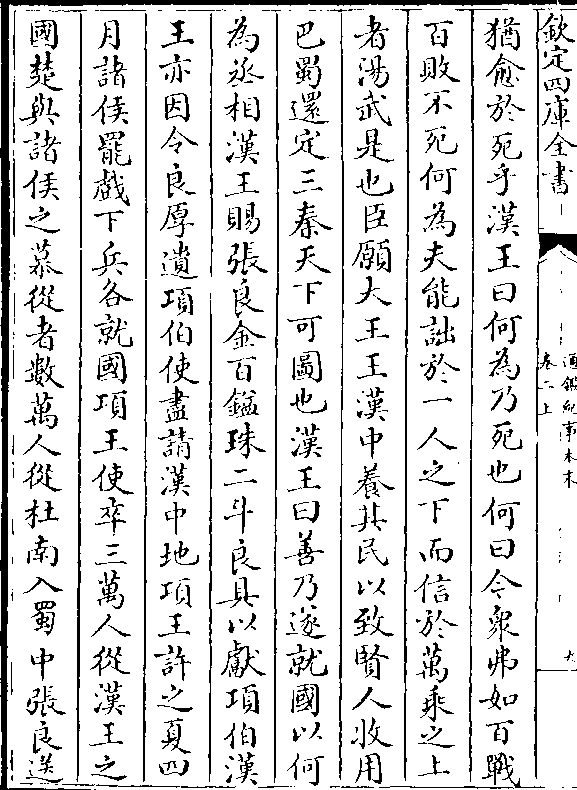 欽定四庫全書
通鑑紀事本末
卷二上
猶愈於死乎漢王曰何為乃死也何曰今衆弗如百戰
百敗不死何為夫能詘於一人之下而信於萬乘之上
者湯武是也臣願大王王漢中養其民以致賢人收用
巴蜀還定三秦天下可圖也漢王曰善乃遂就國以何
為丞相漢王賜張良金百鎰珠二斗良具以獻項伯漢
王亦因令良厚遺項伯使盡請漢中地項王許之夏四
月諸侯罷戲下兵各就國項王使卒三萬人從漢王之
國楚與諸侯之慕從者數萬人從杜南入蜀中張良送